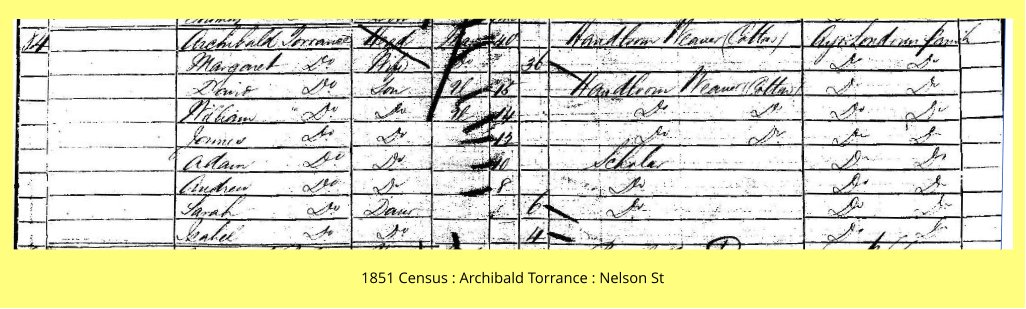 84 Archibald Torrance Head Mar 40 Handloom Weaver (Cotton)
Margaret Do Wife Do 36 Do Do
David Do Son U 18 Handloom Weaver (Cotton) Do Do
William Do Do U 14 Do Do Do Do
James Do Do 12 Do Do Do Do
Adam Do Do 10 Scholar Do Do
Andrew Do Do 8 Do Do Do
Sarah Do Daur 6 Do Do Do
Isabel Do Do 4 Do Do
1851 Census : Archibald Torrance : Nelson St